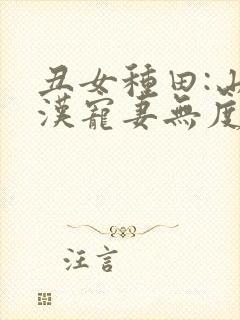 丑女種田:山
漢寵妻無度
汪言